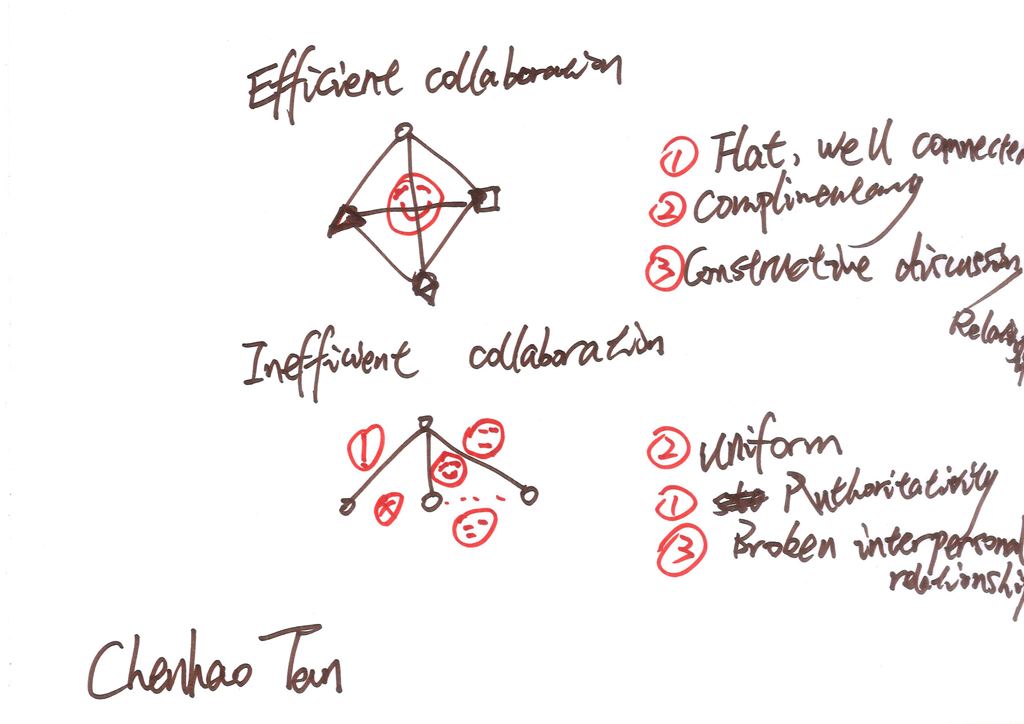 Efficient collaboration
① Flat, well connected
② Complimentary
③ Constructive discussion
Inefficient collaboration
② Uniform
① Authoritativity
③ Broken interpersonal
relationshi
Chenhao Tan